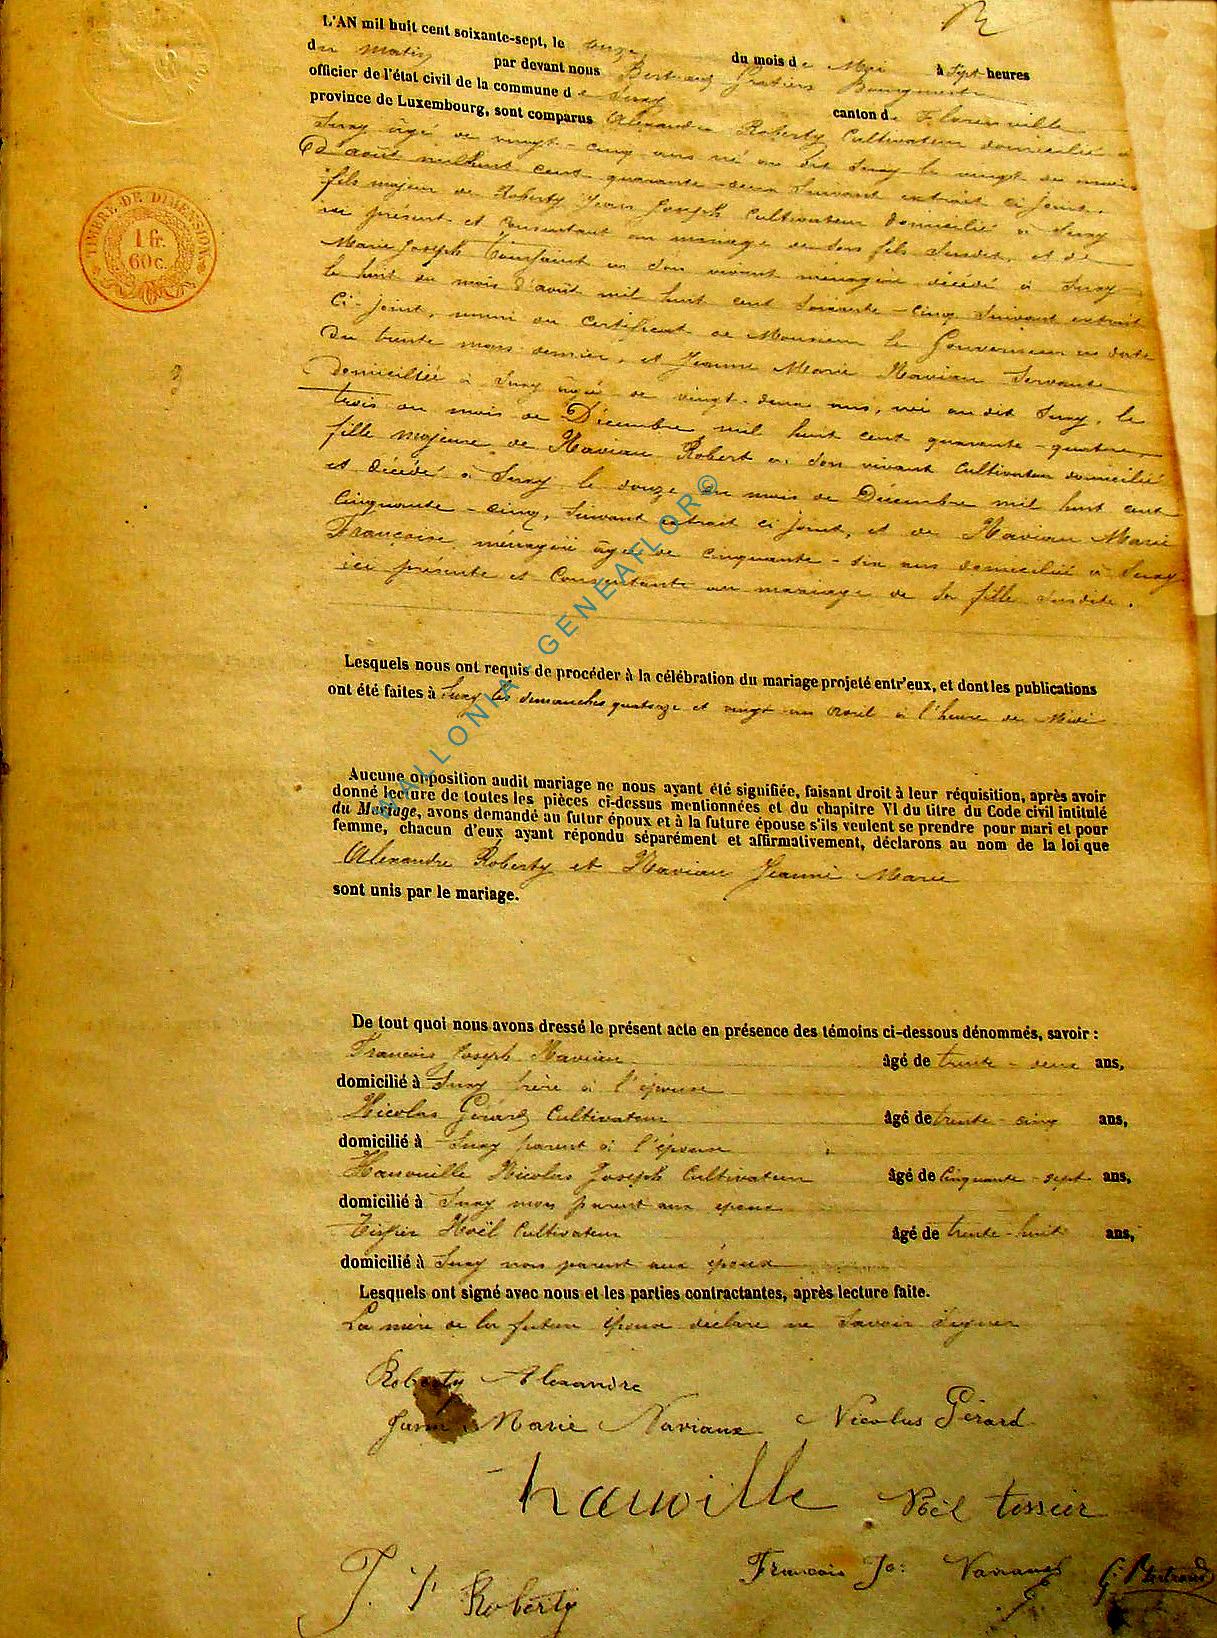 L'AN mil huit cent soixante-sept, le onze du mois de Mai à Sept heures
du matin par devant nous Bertrand Gratien Bourgmestre
officier de l'état civil de la commune de Suxy canton de Florenville
province de Luxembourg, sont comparus Alexandre Roberty Cultivateur domicilié à
Suxy âgé de vingt-cinq ans né au dit Suxy le vingt du mois
d'août mil huit cent quarante-deux Suivant extrait ci joint,
fils majeur de Roberty Jean Joseph Cultivateur domicilié à Suxy
ici présent et Consentant au mariage de Son fils Susdit, et de
Marie Joseph Toussaint en Son vivant ménagère décédée à Suxy
le huit du mois d'août mil huit cent Soixante-cinq Suivant extrait
Ci-joint, muni du Certificat de Monsieur le Gouverneur en date
Du trente mars dernier, et Jeanne Marie Naviau Servante
Domiciliée à Suxy âgée de vingt-deux ans, née au dit Suxy, le
trois du mois de Décembre mil huit cent quarante-quatre,
fille majeure de Naviau Robert en Son vivant Cultivateur domicilié
et décédé à Suxy le douze du mois de Décembre mil huit cent
Cinquante-cinq, Suivant extrait ci joint, et de Naviau Marie
Françoise, ménagère âgée de cinquante-six ans domiciliée à Suxy
ici présente et Consentante au mariage de Sa fille Susdite.
Lesquels nous ont requis de procéder à la célébration du mariage projeté entr'eux, et dont les publications
ont été faites à Suxy les dimanches quatorze et vingt un avril à l'heure de Midi
Aucune opposition audit mariage ne nous ayant été signifiée, faisant droit à leur réquisition, après avoir
donné lecture de toutes les pièces ci-dessus mentionnées et du chapitre VI du titre du Code civil intitulé
du Mariage, avons demandé au futur époux et à la future épouse s'ils veulent se prendre pour mari et pour
femme, chacun d'eux ayant répondu séparément et affirmativement, déclarons au nom de la loi que
Alexandre Roberty et Naviau Jeanne Marie
sont unis par le mariage.
De tout quoi nous avons dressé le présent acte en présence des témoins ci-dessous dénommés, savoir :
Francois Joseph Naviau âgé de trente-deux ans,
domicilié à Suxy frère à l'épouse
Nicolas Gérard Cultivateur âgé de trente-cinq ans,
domicilié à Suxy parent à l'épouse
Hanouille Nicolas Joseph Cultivateur âgé de Cinquante-sept ans,
domicilié à Suxy non parent aux époux
Tissier Noël Cultivateur âgé de trente-huit ans,
domicilié à Suxy non parent aux époux
Lesquels ont signé avec nous et les parties contractantes, après lecture faite.
La mère de la future Epouse déclare ne Savoir Signer
Roberty Alexandre
Marie Naviaux Nicolas Gérard
Noël tessier
J. J. Roberty
Francois Jo: G. Bertrand
TIMBRE DE DIMENSION
1 fr.
60 c.
WALLONIA - GENEAFLOR©